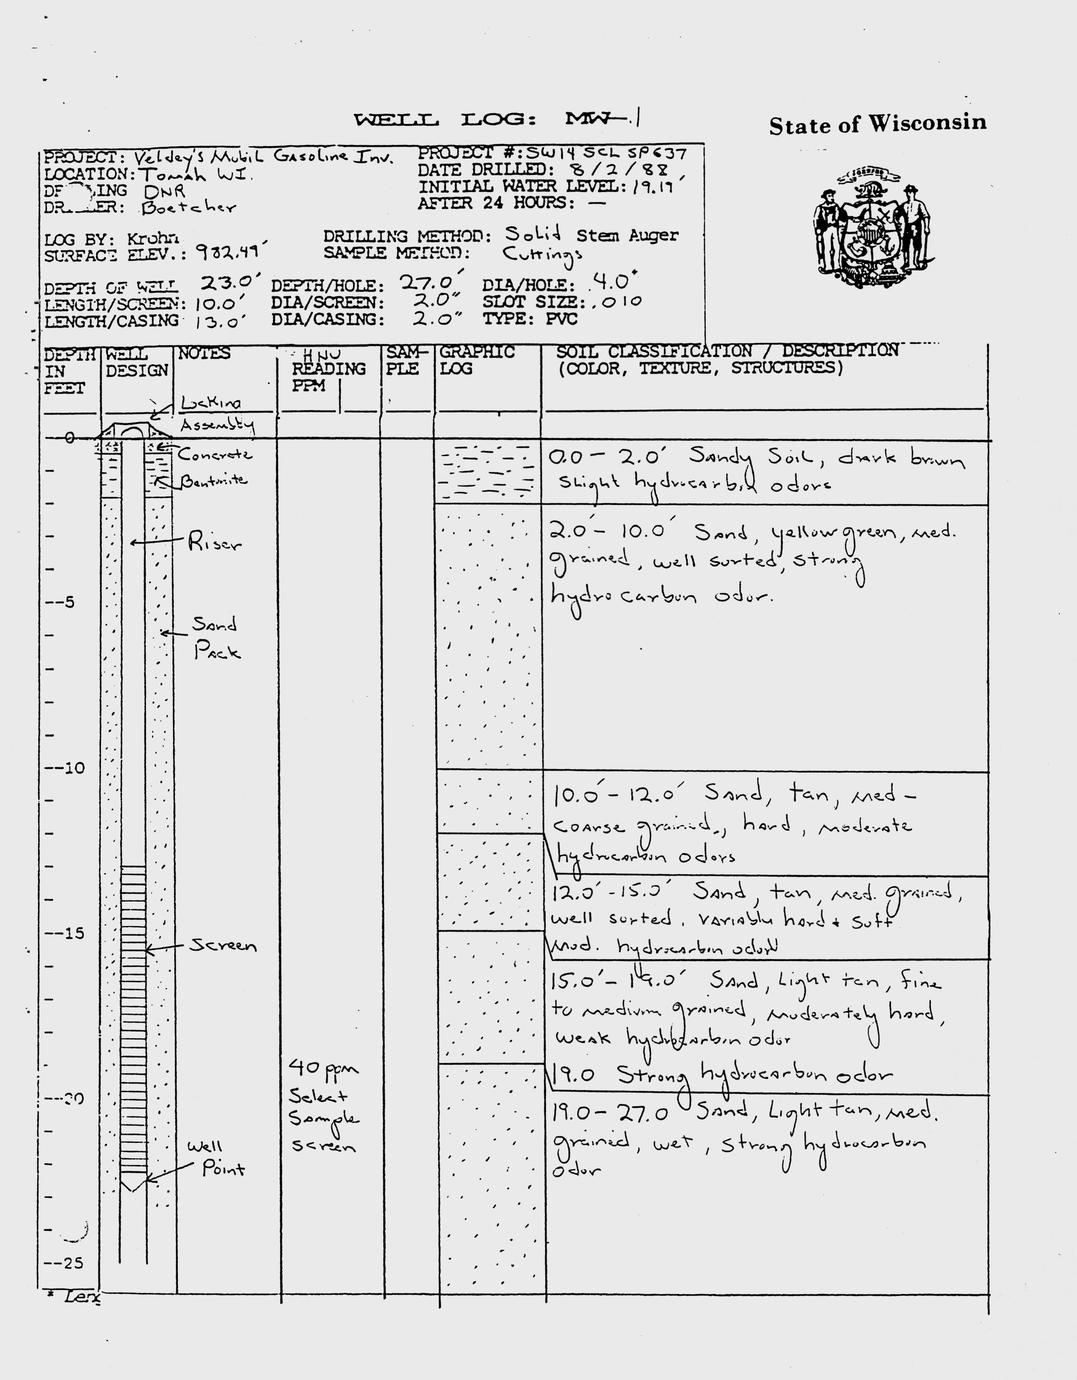 WELL LOG: MW-1
State of Wisconsin
PROJECT: Veldey's Mobil Gasoline Inv. PROJECT #: SW14 SCL SP637
LOCATION: Tomah WI. DATE DRILLED: 8/2/88
ING DNR INITIAL WATER LEVEL: 19.17'
DR ER: Boetcher AFTER 24 HOURS: —
LOG BY: Krohn DRILLING METHOD: Solid Stem Auger
SURFACE ELEV.: 982.47' SAMPLE METHOD: Cuttings
DEPTH OF WELL 23.0' DEPTH/HOLE: 27.0' DIA/HOLE: 4.0"
LENGTH/SCREEN: 10.0' DIA/SCREEN: 2.0" SLOT SIZE: .010
LENGTH/CASING 13.0' DIA/CASING: 2.0" TYPE: PVC
DEPTH IN FEET
WELL DESIGN
NOTES
HNU READING PPM
SAM-PLE
GRAPHIC LOG
SOIL CLASSIFICATION / DESCRIPTION
(COLOR, TEXTURE, STRUCTURES)
Locking
Assembly
0
Concrete
0.0 - 2.0' Sandy Soil, dark brown
Bentonite
slight hydrocarbon odors
2.0' - 10.0' Sand, yellow green, med.
Riser
grained, well sorted, strong
--5
hydrocarbon odor.
Sand
Pack
--10
10.0' - 12.0' Sand, tan, med -
coarse grained, hard, moderate
hydrocarbon odors
12.0' - 15.0' Sand, tan, med. grained,
--15
well sorted, variably hard + soft
Screen
Mod. hydrocarbon odor
15.0' - 19.0' Sand, Light tan, fine
to medium grained, moderately hard,
weak hydrocarbon odor
40 ppm
19.0 Strong hydrocarbon odor
Select
--20
Sample
19.0 - 27.0 Sand, Light tan, med.
Screen
grained, wet, strong hydrocarbon
Well
Point
odor
--25